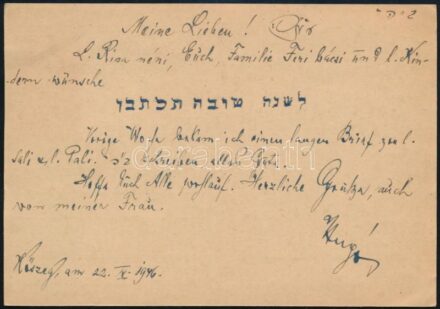 ב"ה
Meine Lieben! Für
L. Rian néni, Euch, Familie Feri bácsi und l. Kin-
dern wünsche
לשנה טובה תכתבו
Vorige Woche bekam ich einen langen Brief von l.
Sali u. l. Pali. schreiben alles Gute.
Hoffe Euch Alle wohlauf. Herzliche Grüße, auch
von meiner Frau.
Hugó
Kőszeg, am 22. IX. 1946.
darabanth